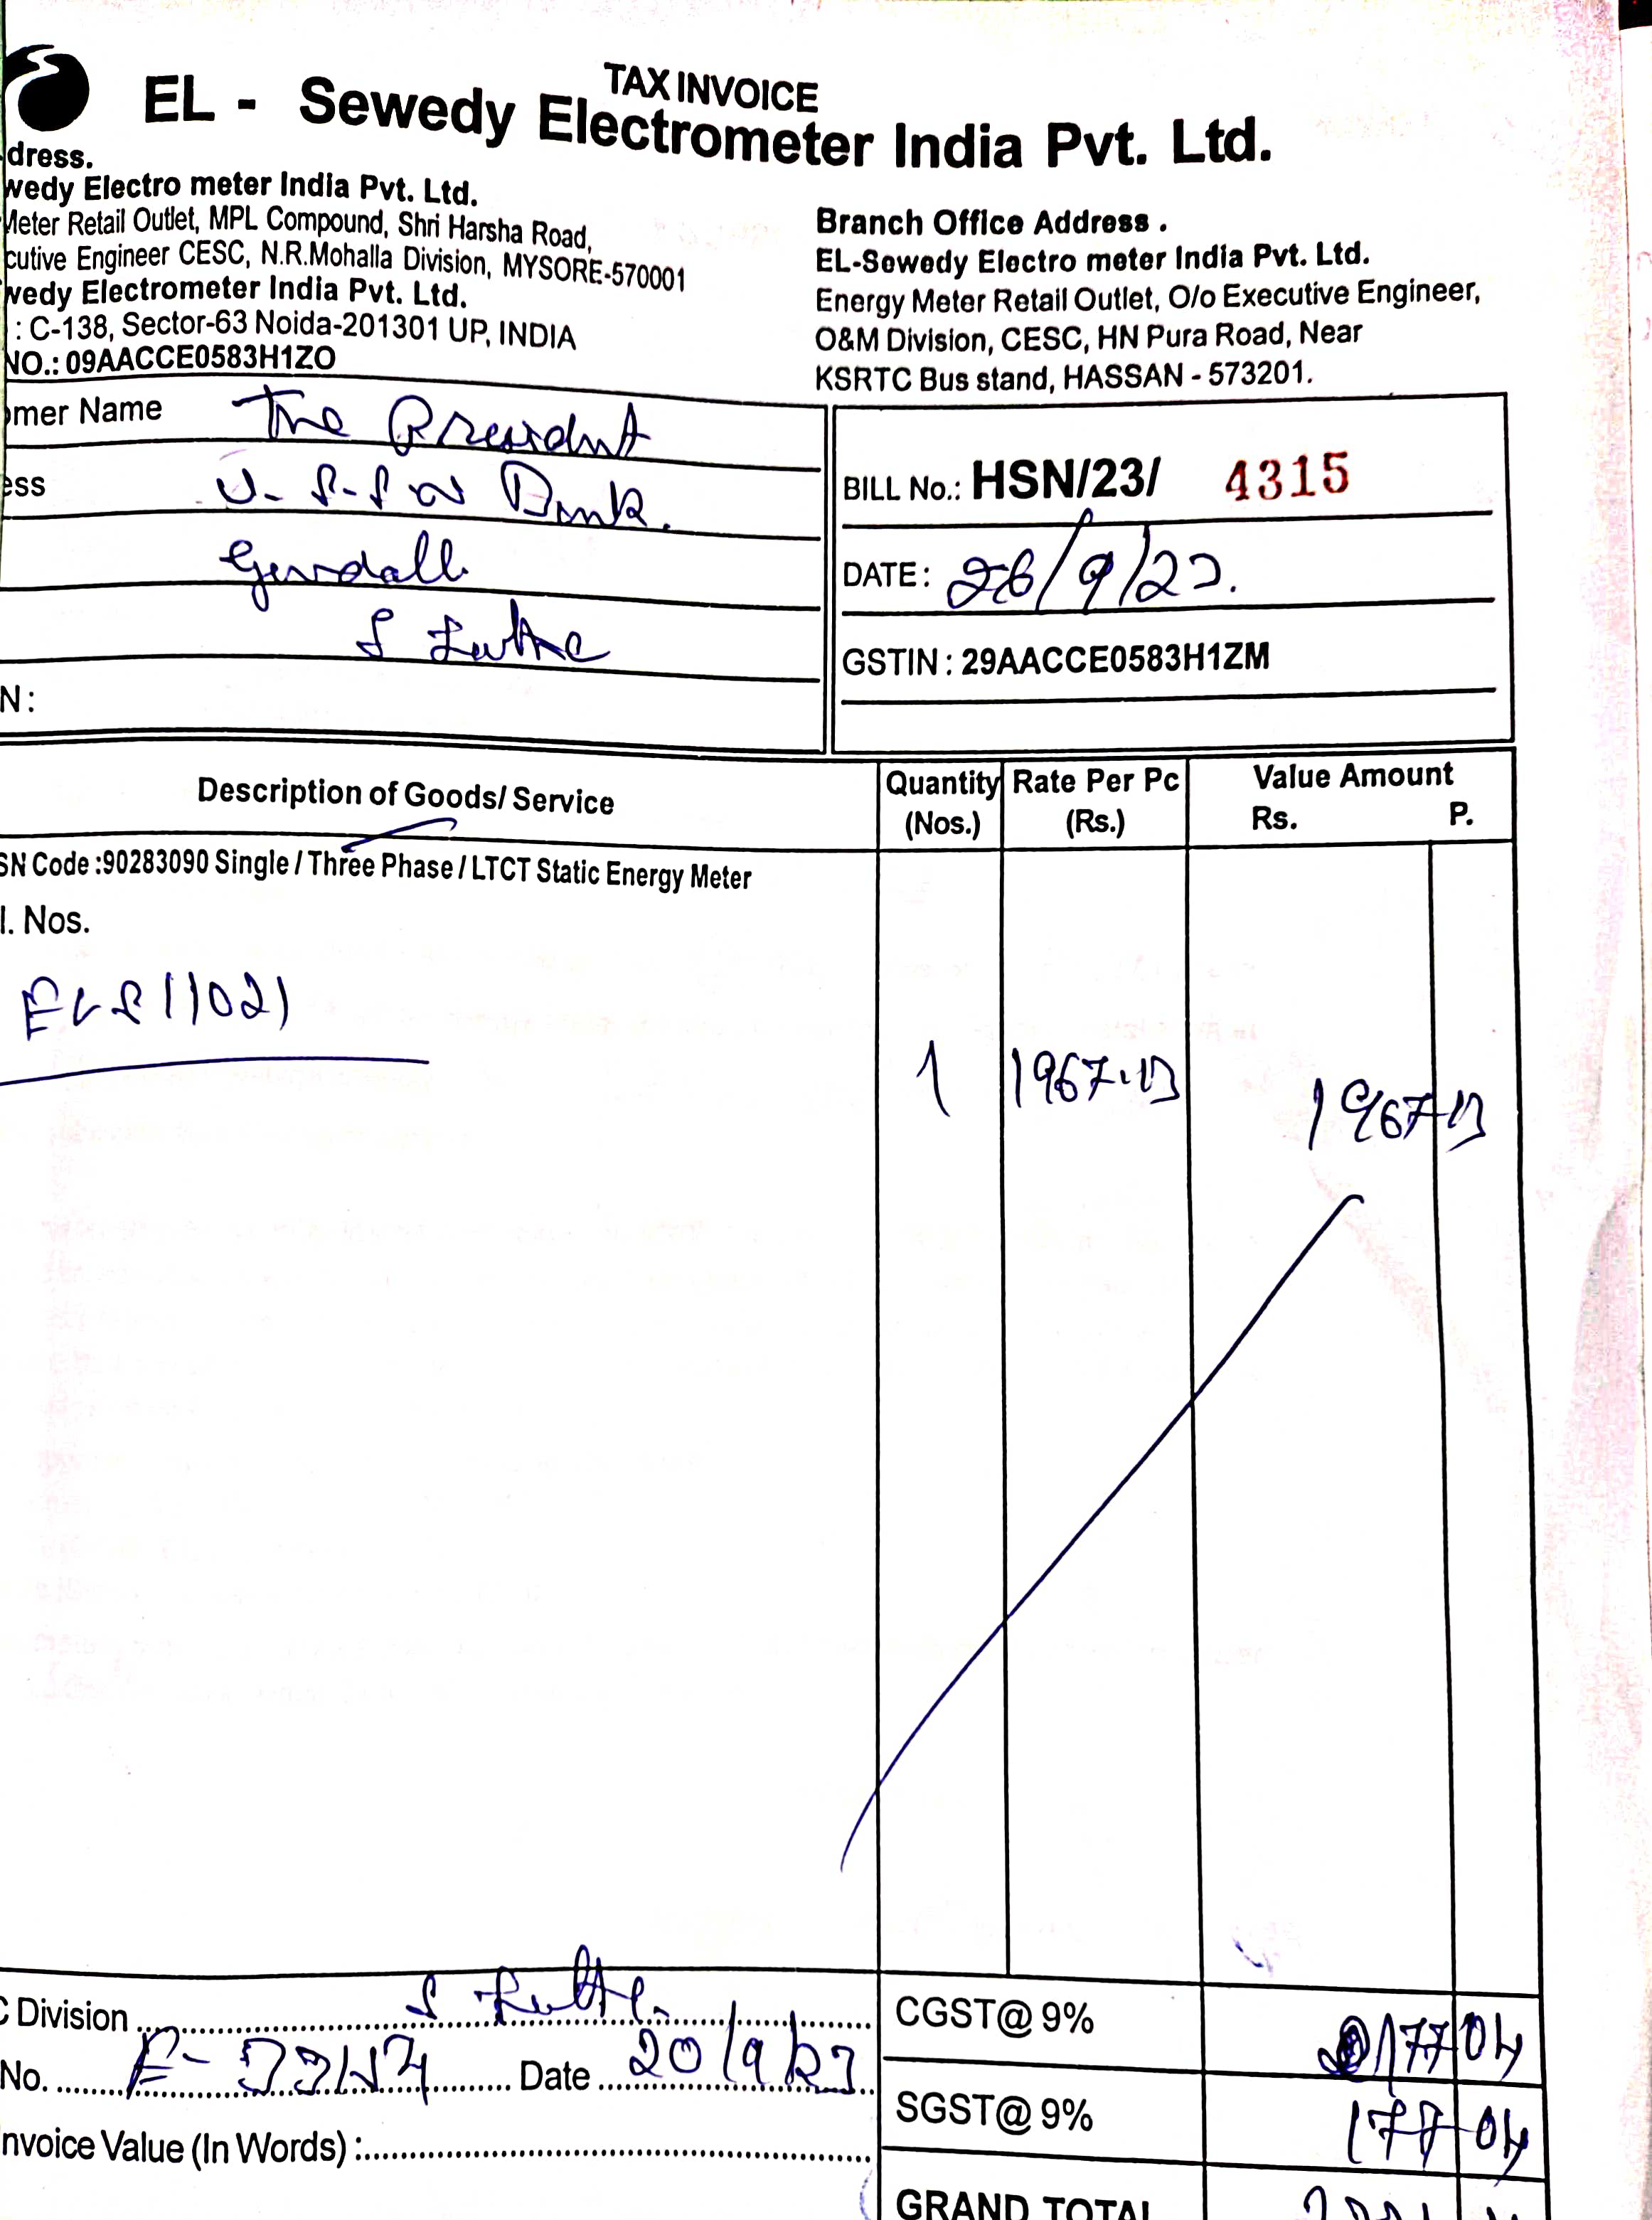 TAX INVOICE
EL - Sewedy Electrometer India Pvt. Ltd.
dress.
wedy Electro meter India Pvt. Ltd.
Meter Retail Outlet, MPL Compound, Shri Harsha Road,
cutive Engineer CESC, N.R.Mohalla Division, MYSORE-570001
wedy Electrometer India Pvt. Ltd.
: C-138, Sector-63 Noida-201301 UP, INDIA
NO.: 09AACCE0583H1ZO
Branch Office Address .
EL-Sewedy Electro meter India Pvt. Ltd.
Energy Meter Retail Outlet, O/o Executive Engineer,
O&M Division, CESC, HN Pura Road, Near
KSRTC Bus stand, HASSAN - 573201.
omer Name The President
ess Bank.
N :
BILL No.: HSN/23/ 4315
DATE : 26/9/23.
GSTIN : 29AACCE0583H1ZM
Description of Goods/ Service
Quantity (Nos.)
Rate Per Pc (Rs.)
Value Amount
Rs. P.
SN Code :90283090 Single / Three Phase / LTCT Static Energy Meter
l. Nos.
ELS11021
1 1967.13 1967 13
C Division
No. Date 20/9/23
nvoice Value (In Words) :
CGST@ 9% 177 04
SGST@ 9% 177 04
GRAND TOTAL